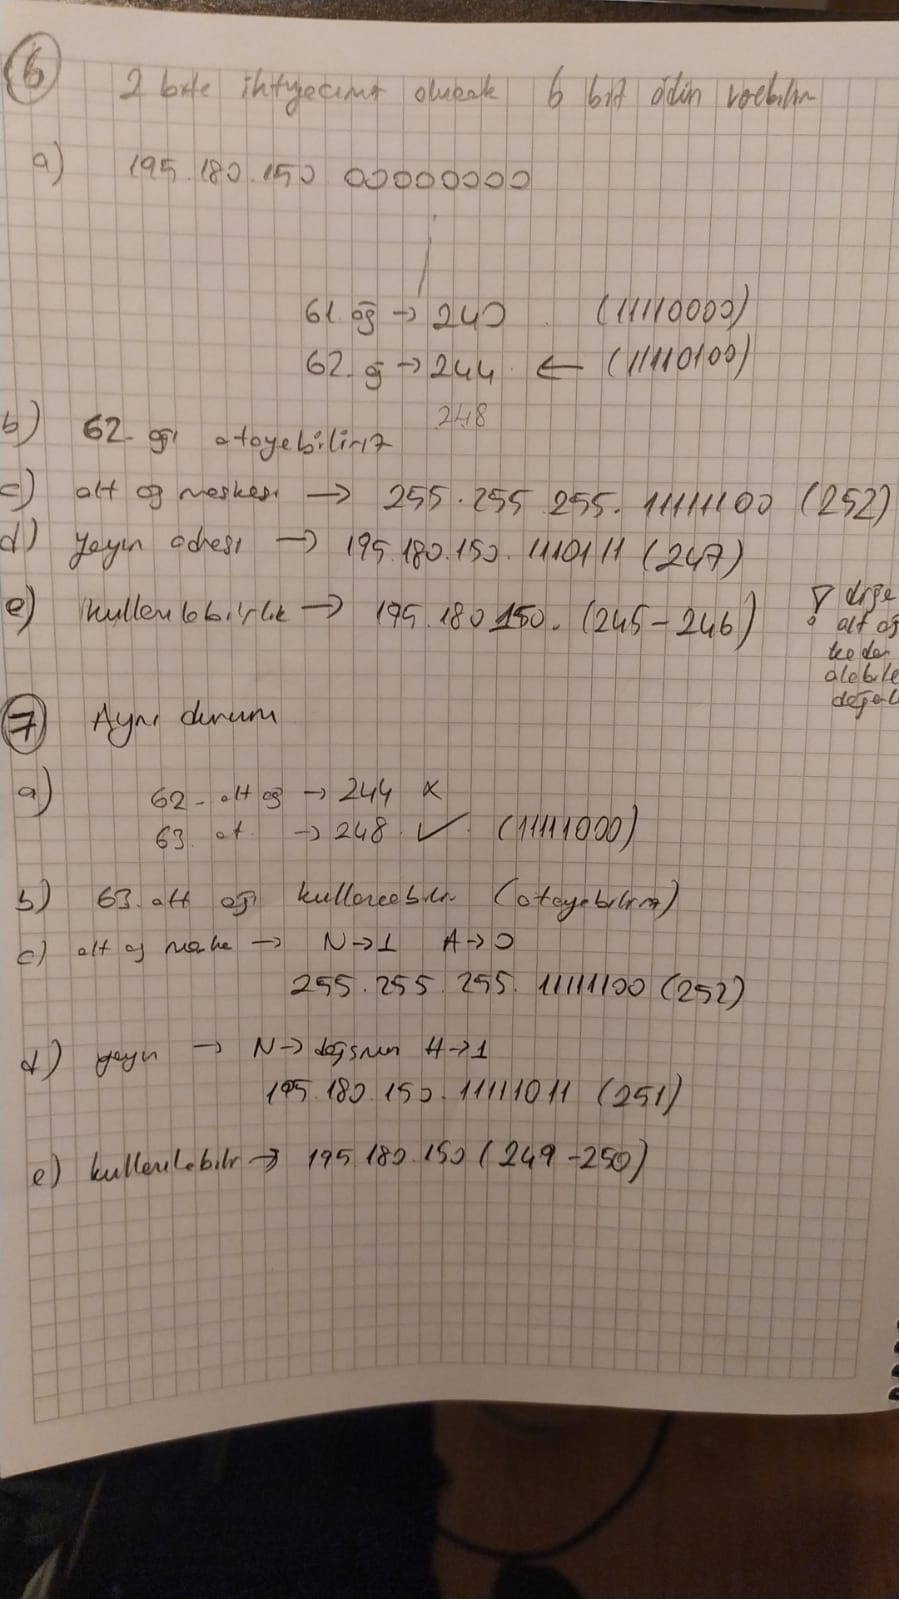 6
2 bite ihtiyacımız olucak 6 bit ödün verebilirim
a) 195.180.150 00000000
61. ağ → 240 (11110000)
62. ğ → 244 ← (11110100)
248
b) 62. ağı atayabiliriz
c) alt ağ maskesi → 255.255 255. 11111100 (252)
d) yayın adresi → 195.180.150. 1110111 (247)
e) kullanılabilirlik → 195.180 150. (245-246)
alt ağ
7 Aynı durum
a) 62. alt ağ → 244 x
63. at → 248 ✓ (11111000)
b) 63. alt ağı (atayabilirim)
c) alt ağ maske → N→1 A→0
255.255.255. 11111100 (252)
d) yayın → N→ H→1
195.180.150. 11111011 (251)
e) kullanılabilir → 195.180.150 (249-250)